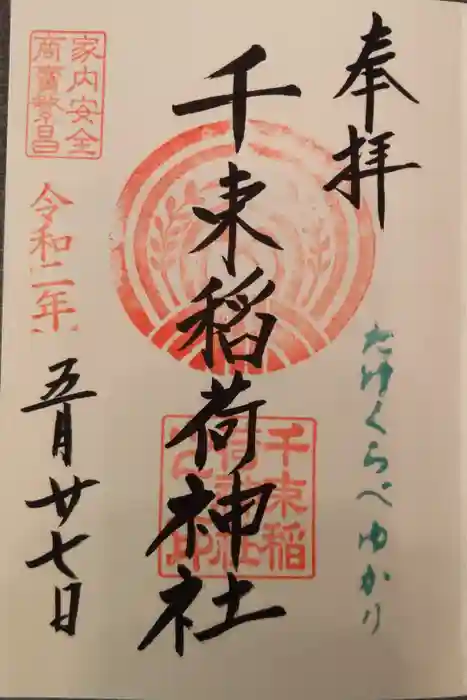 奉拝
たけくらべゆかり
千束稲荷神社
千束稲
荷神社
之印
家内安全
商売繁昌
令和二年
五月廿七日